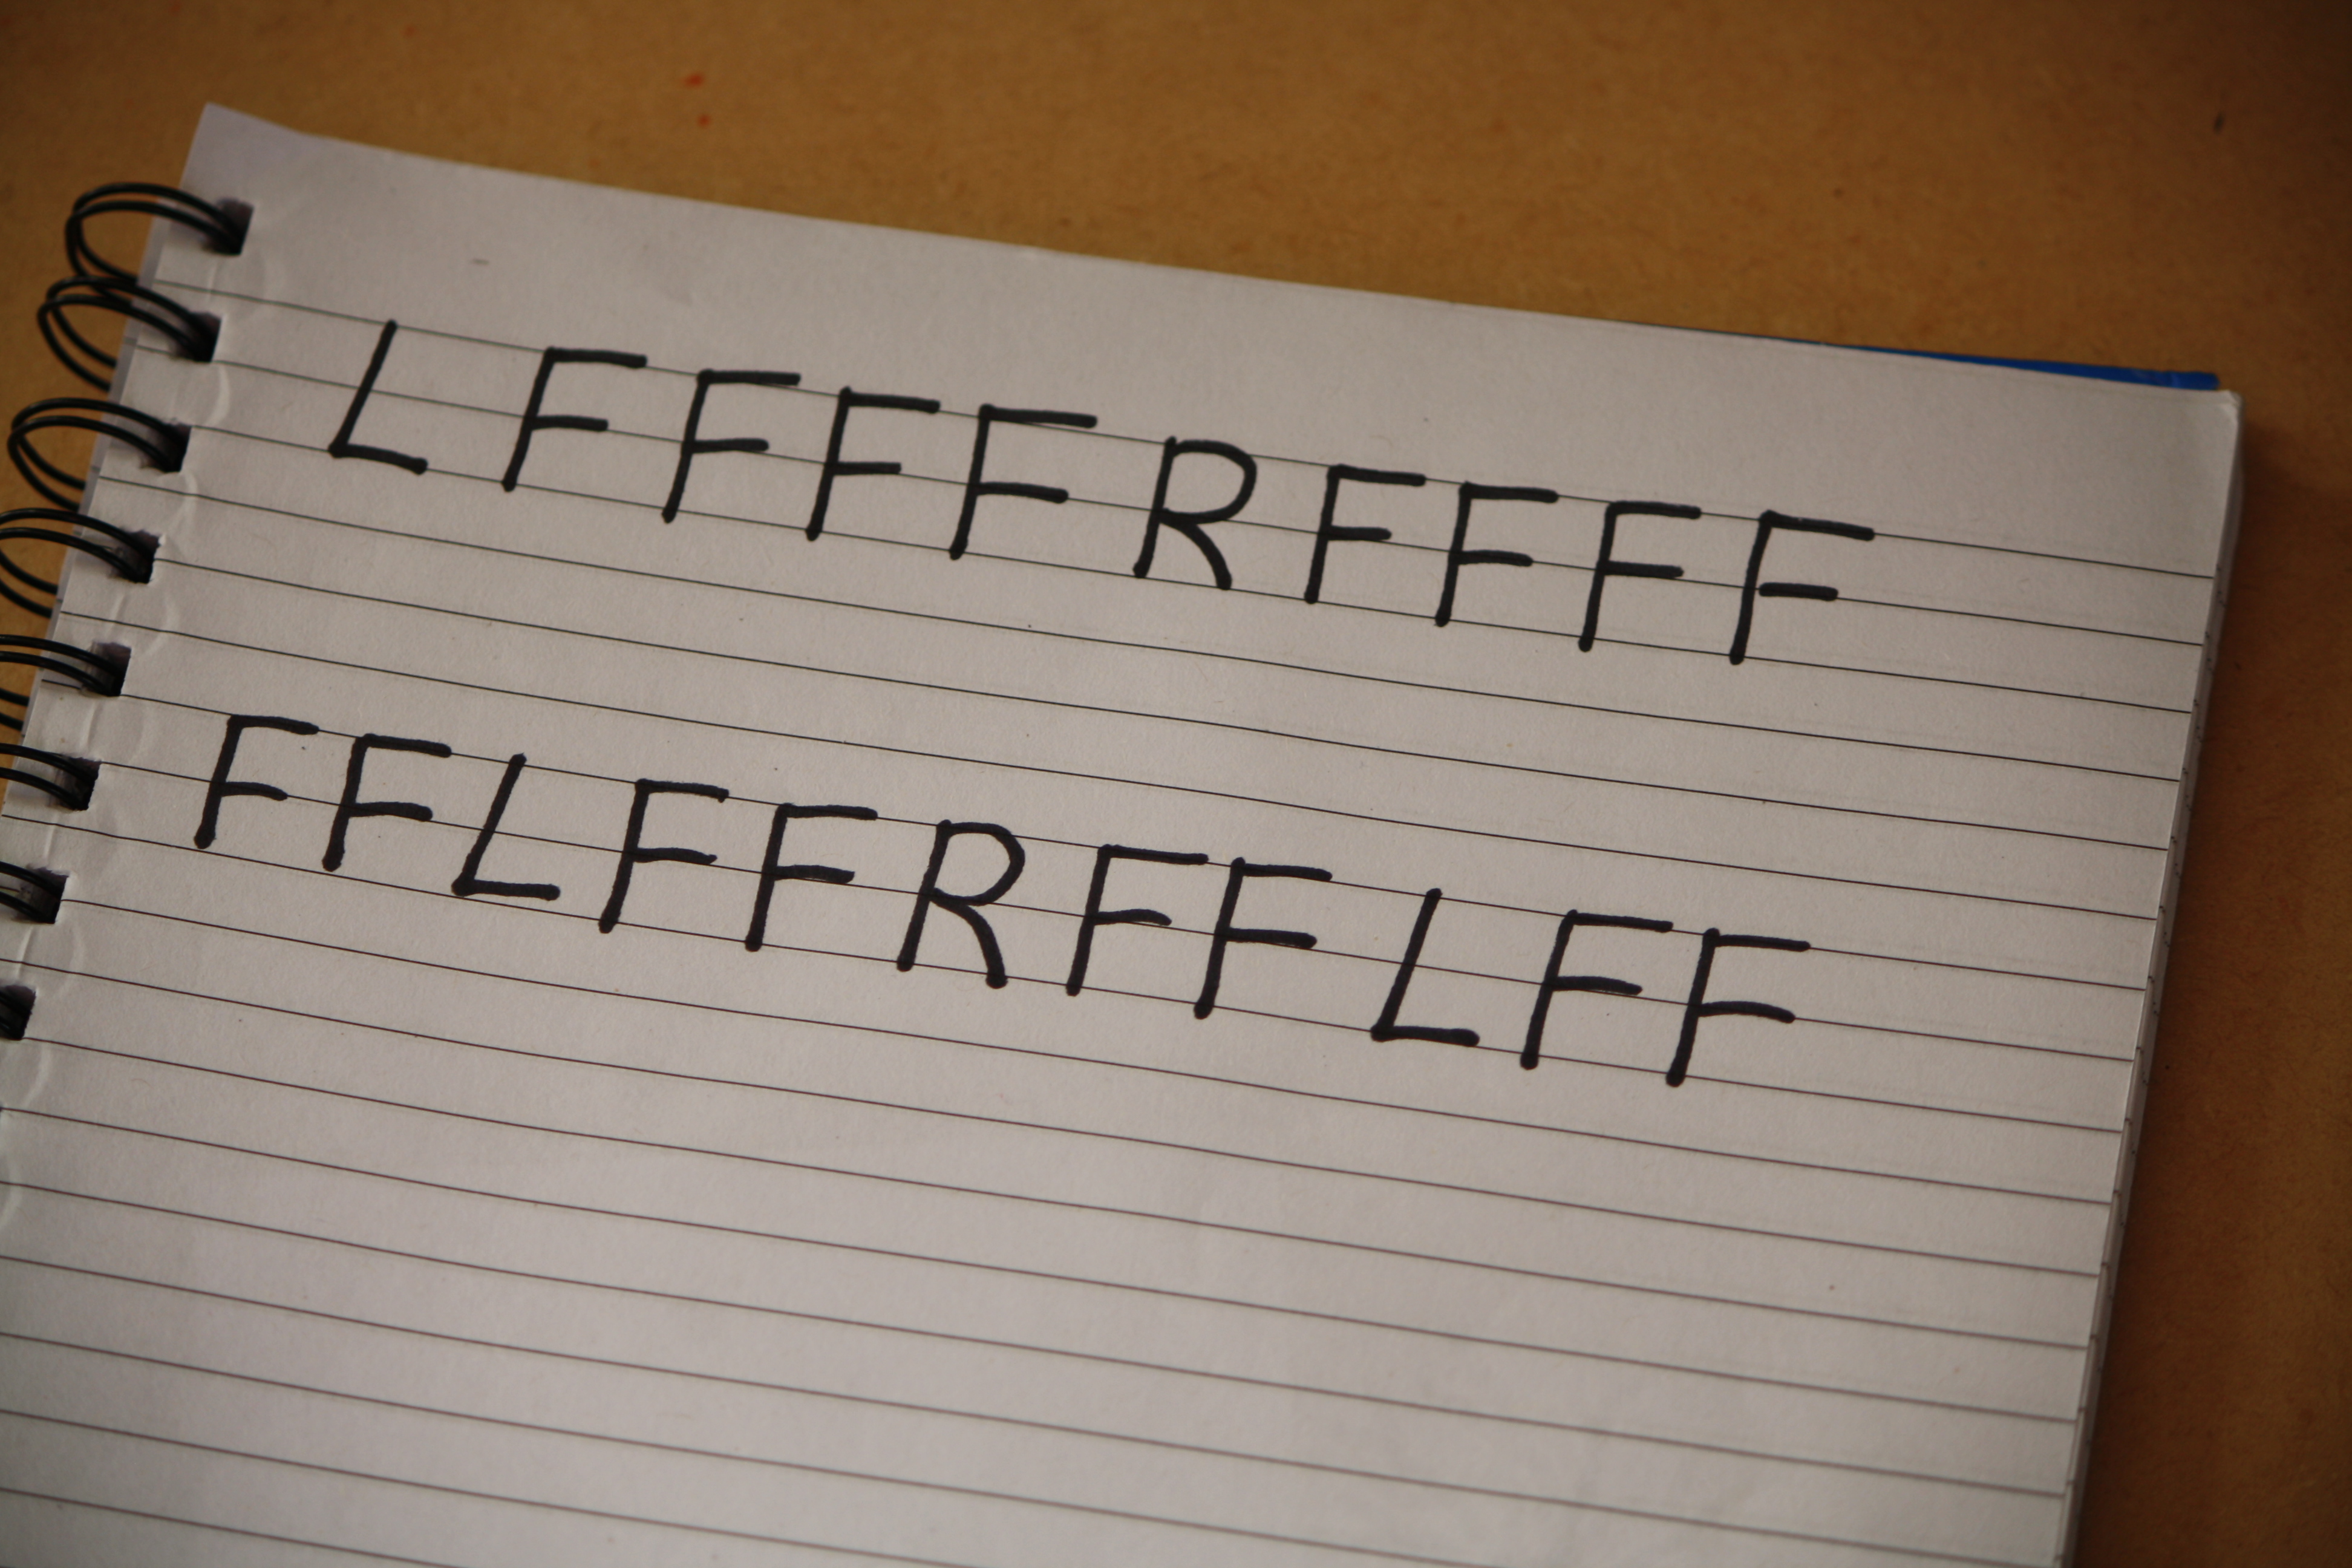 LFFFFRFFFF
FFLFFRFFLFF